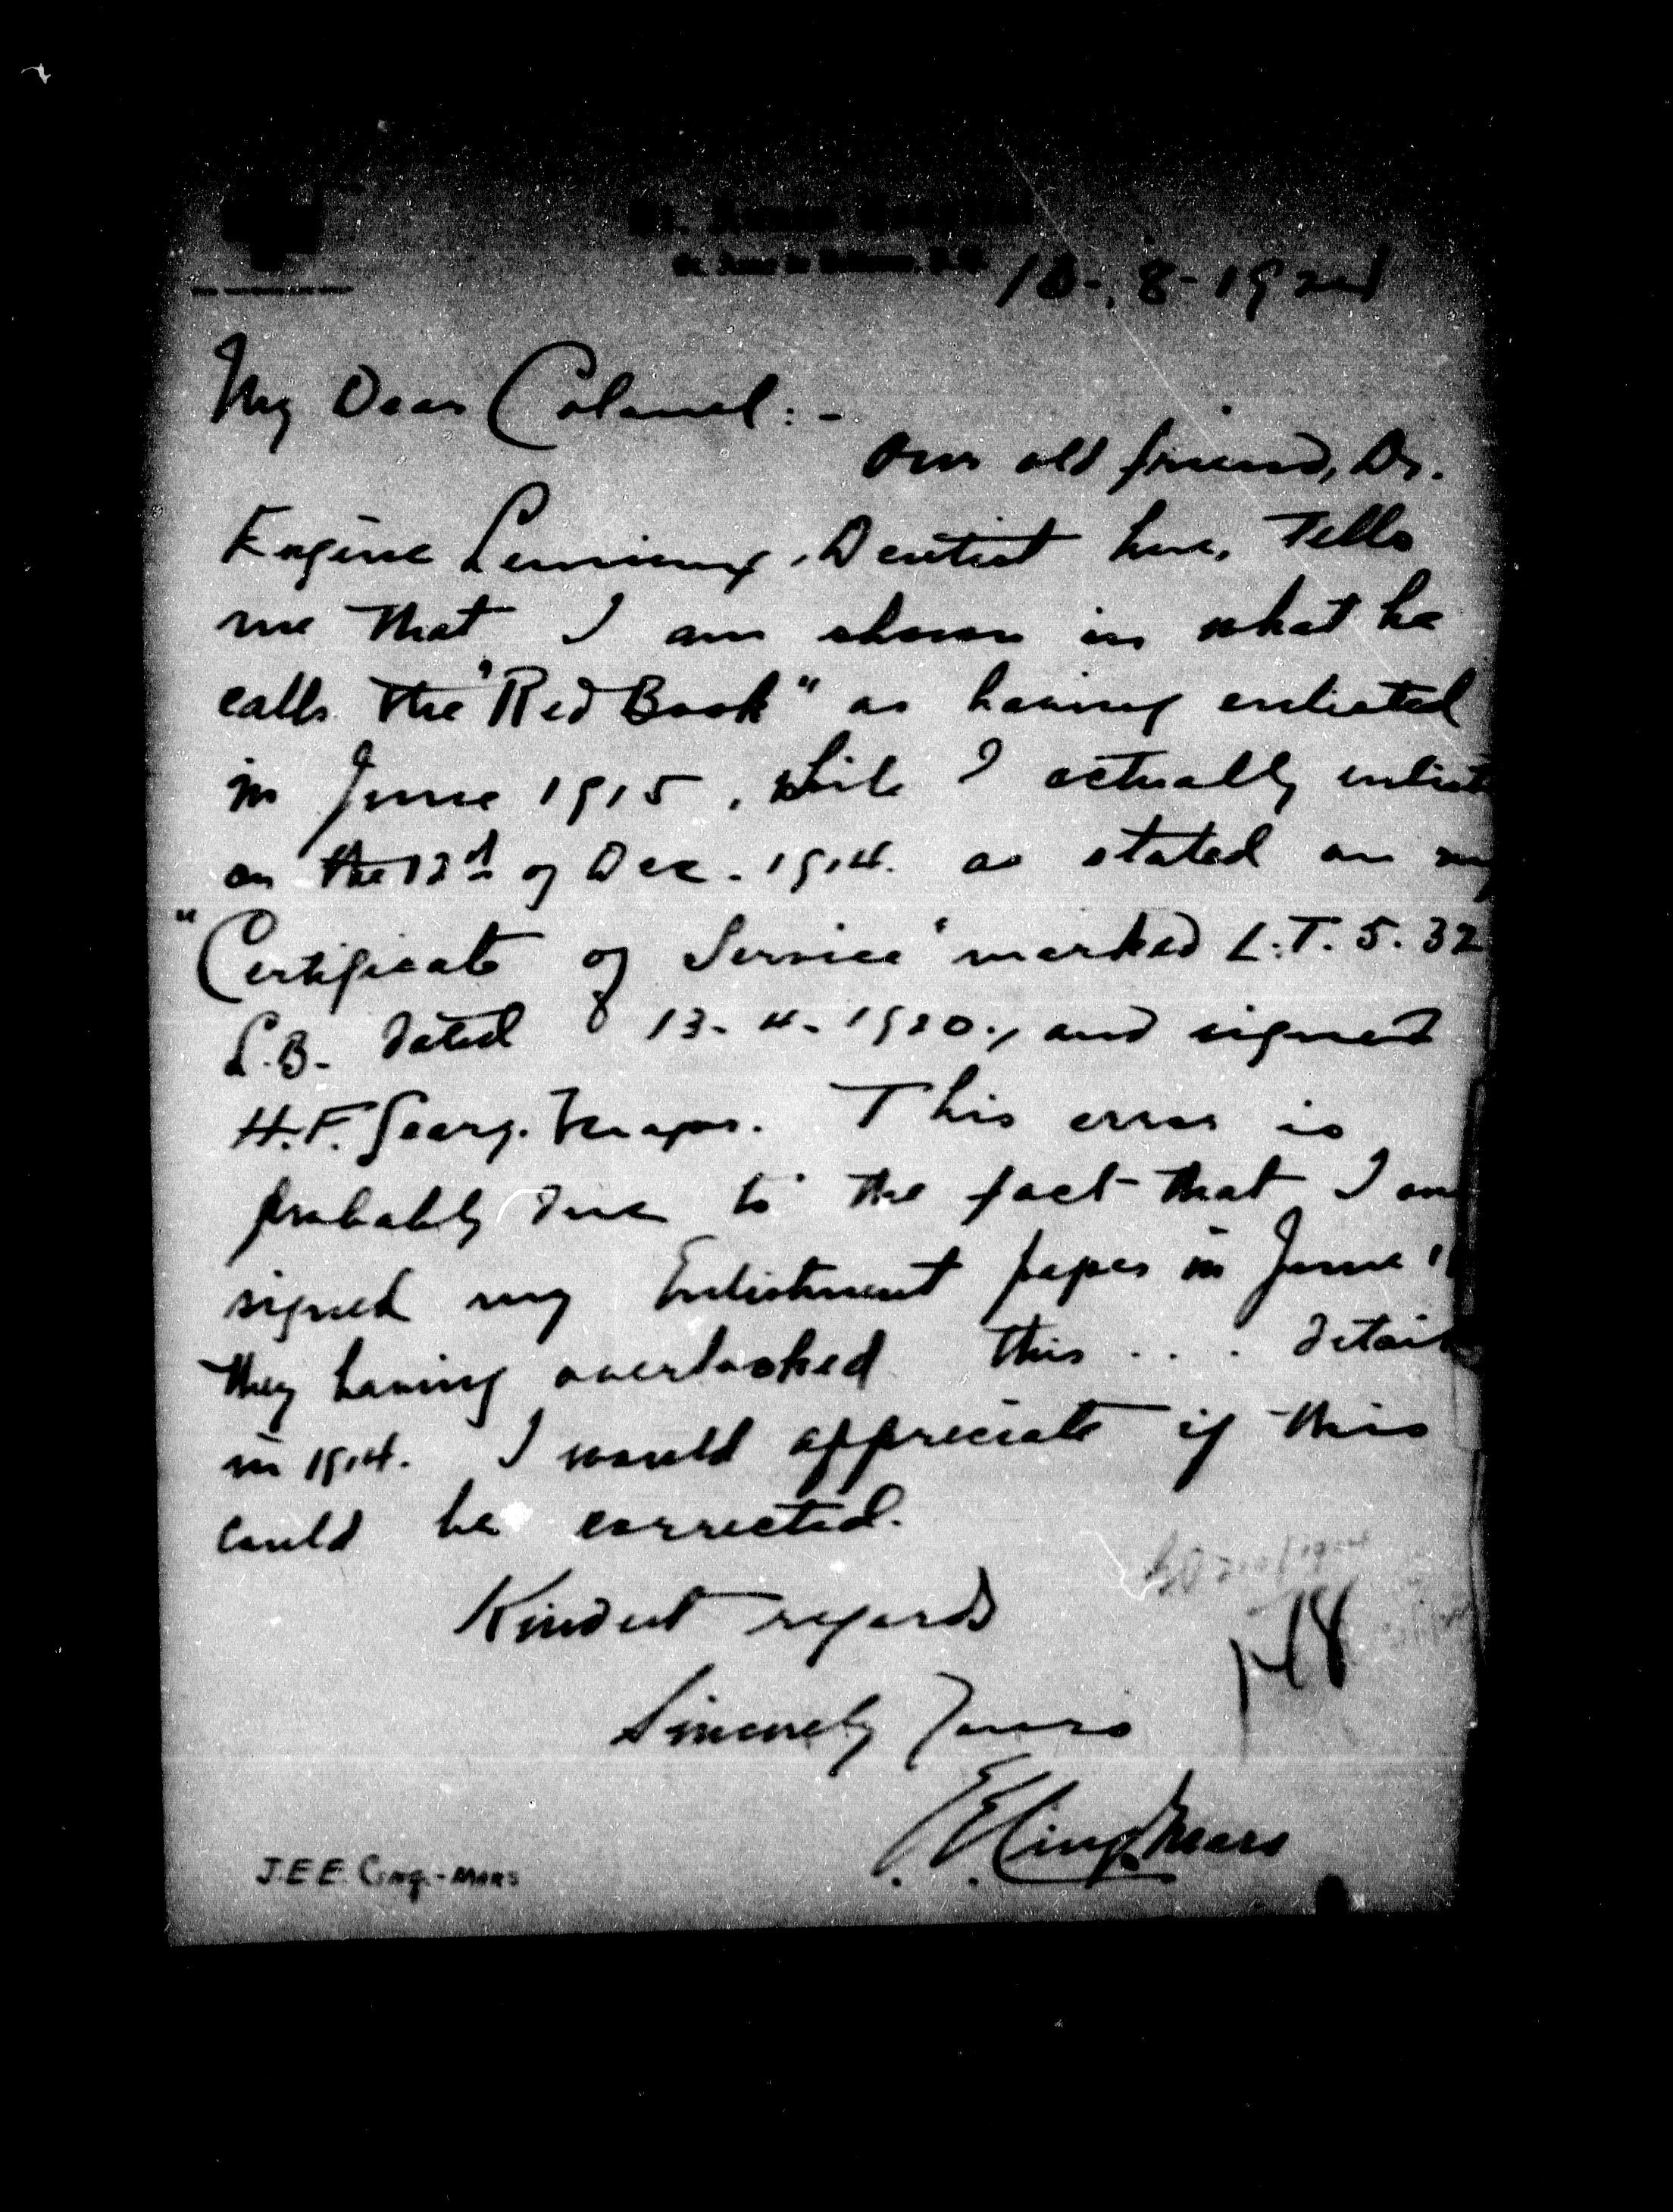 My Dear Colonel:-
Our old friend, Dr.
Eugène Lemieux, Dentist here, tells
me that I am shown in what he
calls the "Red Book" as having enlisted
in June 1915, while I actually enliste
on the of Dec. 1914. as stated on my
"Certificate of Service" marked L.T. 5. 32
L.B. dated 13-4-1920., and signed
H.F. Geary. Major. This error is
probably due to the fact that I on
signed my Enlistment papers in June
they having overlooked this . . . detail
in 1914. I would appreciate if this
could be corrected.
Kindest regards
Sincerely Yours
J.E.E. Cinq-Mars